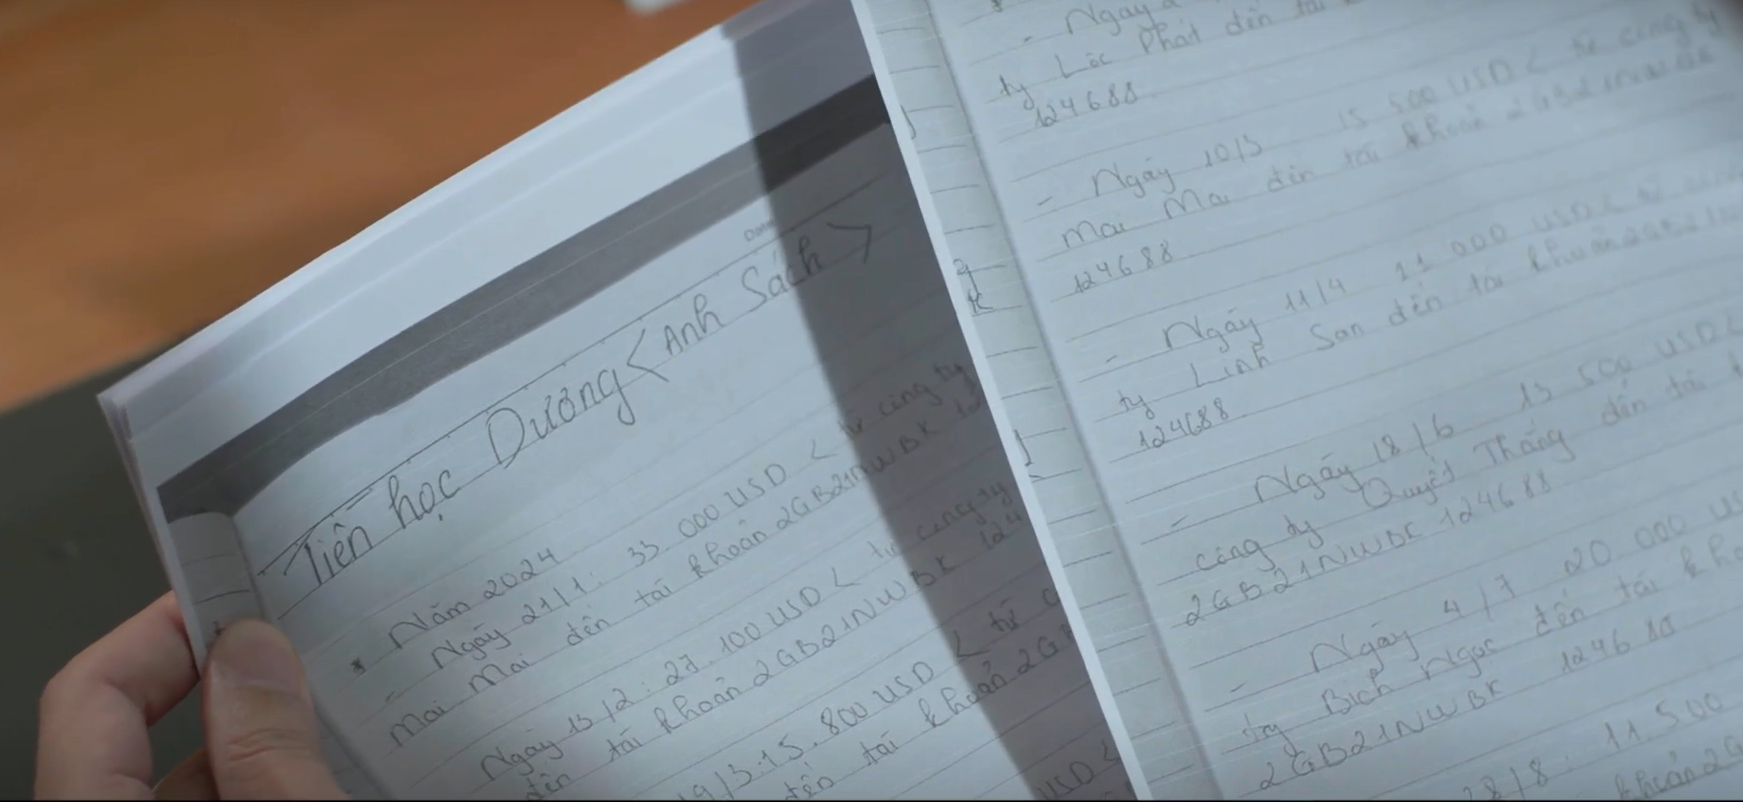 Tiền học Dương < Anh Sách >
* Năm 2024
- Ngày 21/1: 33.000 USD < từ công ty
Mai Mai đến tài khoản 2GB21NWBK
Ngày 15/2: 27.100 USD < từ công ty
đến tài khoản 2GB21NWBK 124
/3: 15.800 USD < từ
đến tài khoản 2G
USD <
- Ngày
ty Lộc Phát đến tài
124688
- Ngày 10/3 15 500 USD < từ công ty
Mai Mai đến tài khoản 2GB21NWBK
124688
- Ngày 11/4 11 000 USD < từ công
ty Linh San đến tài khoản 2GB21N
124688
- Ngày 18/6 13 500 USD <
công ty Quyết Thắng đến tài
2GB21NWBK 124688
- Ngày 4/7 20 000 US
ty Bích Ngọc đến tài kho
2GB21NWBK 124688
28/8: 11.500
khoản 2G